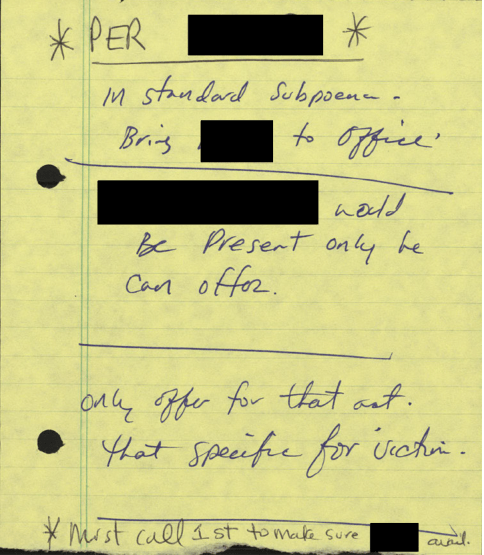 * PER *
In standard Subpoena -
Bring to office.
would
Be Present only he
Can offer.
only offer for that act.
that specific for victim.
* Must call 1st to make sure avail.